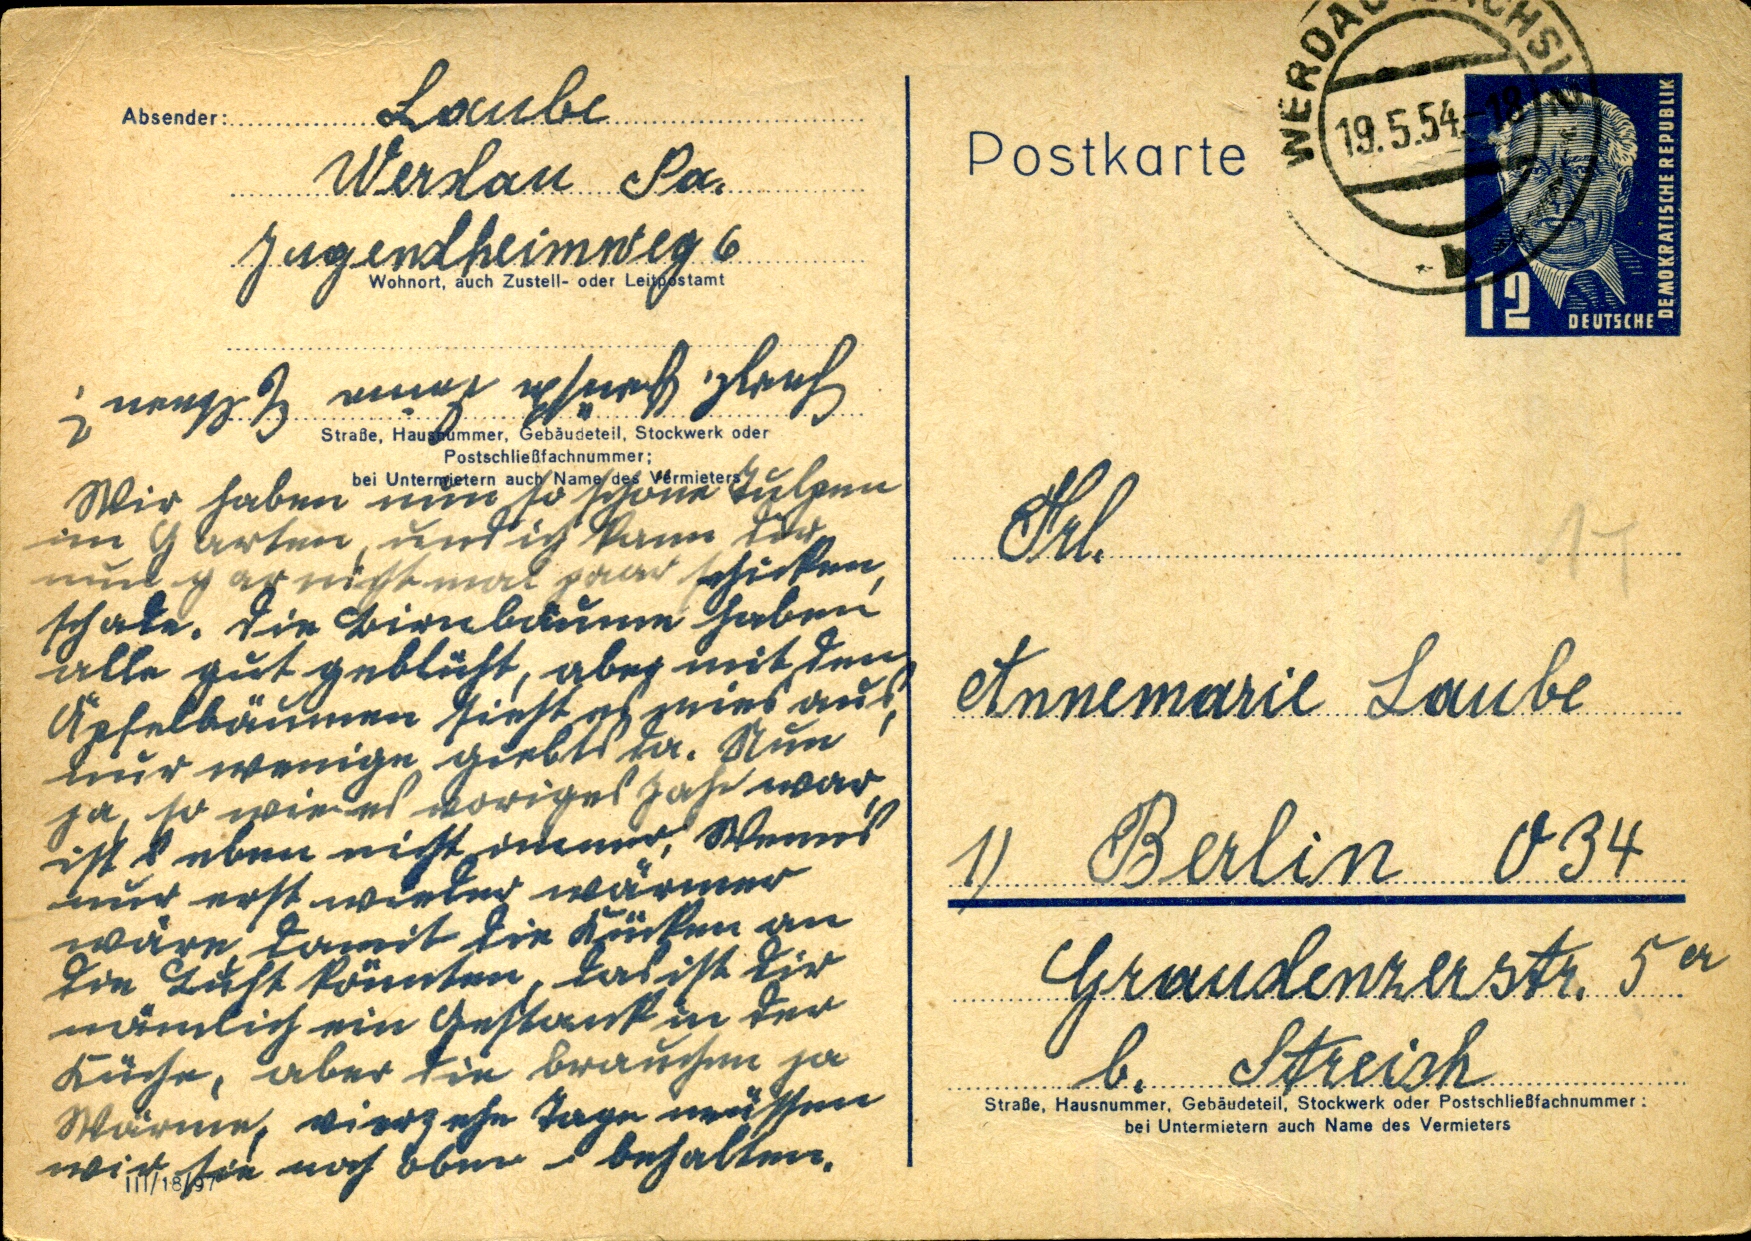 Absender: Laube
Werdau Sa.
Jugendheimweg 6
Wohnort, auch Zustell- oder Leitpostamt
Straße, Hausnummer, Gebäudeteil, Stockwerk oder
Postschließfachnummer;
bei Untermietern auch Name des Vermieters
Wir haben nun so schöne Tulpen
im Garten, und ich kann dir
nun gar nicht mal paar schicken,
schade. Die Birnbäume haben
alle gut geblüht, aber mit den
Äpfelbäumen sieht es mies aus,
nur wenige giebts da. Nun
ja, so wie es voriges Jahr war,
ist's eben nicht immer. Wenns
nur erst wieder wärmer
wäre, damit die Kücken an
die Luft könnten, das ist dir
nämlich ein Gestank in der
Küche, aber die brauchen ja
Wärme, vierzehn Tage müssen
wir sie noch oben behalten.
III/18/97
Postkarte
WERDAU (SACHS) 2
19.5.54.-18
b
12
DEUTSCHE
DEMOKRATISCHE REPUBLIK
Frl.
Annemarie Laube
1) Berlin O 34
Graudenzerstr. 5a
b. Streich
Straße, Hausnummer, Gebäudeteil, Stockwerk oder Postschließfachnummer:
bei Untermietern auch Name des Vermieters